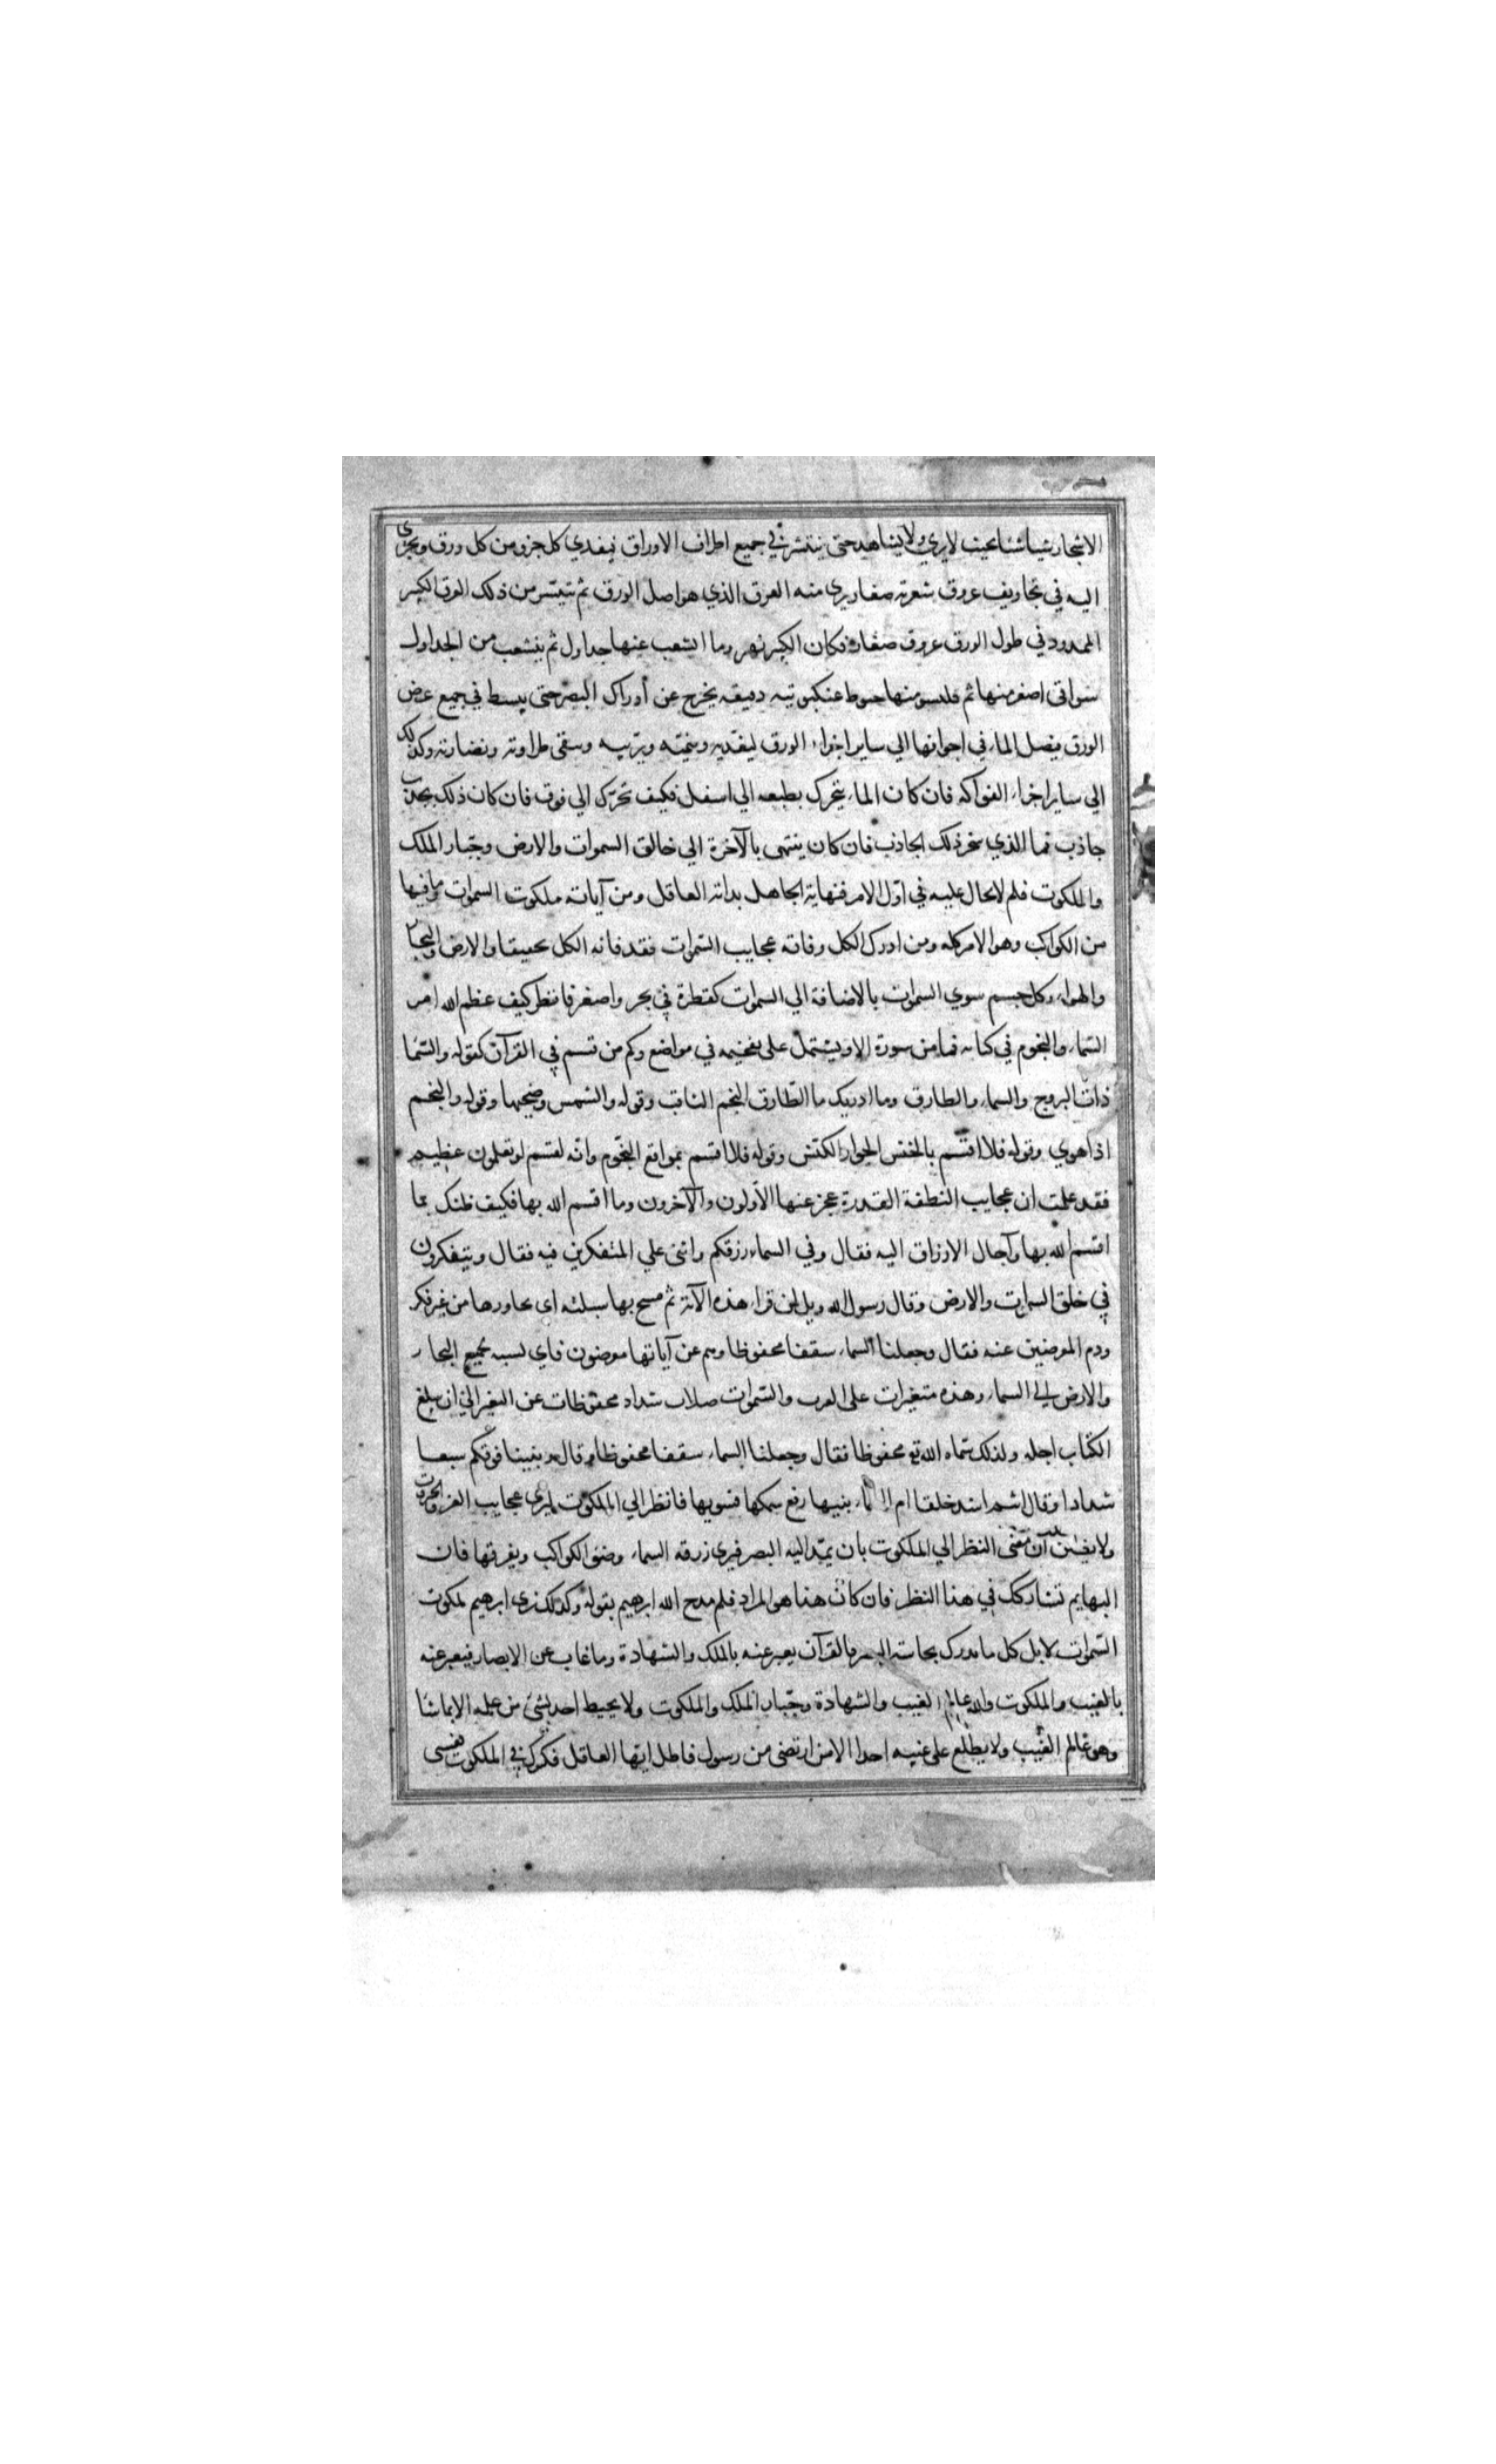 الاشجار شيئا شيئا بحيث لا يري ولا يشاهد حتى ينتشر في جميع اطراف الاوراق فيغدي كل جزو من كل ورق ويجري
اليه في تجاويف عروق شعرية صغار يرى منه العرق الذي هو اصل الورق ثم ينتشر من ذلك العرق الكبير
الممدود في طول الورق عروق صغار فكان الكبير نهر وما انشعب عنها جداول ثم ينشعب من الجداول
سواقى اصغر منها ثم منها خيوط عنكبوتيه دقيقه يخرج عن أدراك البصر حتى ينبسط في جميع عرض
الورق فيصل الماء في اجوافها الي ساير اجزاء الورق ليغديه وينميه ويزينه ويبقى طراوته ونضارته وكذلك
الي ساير اجزاء الفواكه فان كان الماء يتحرك بطبعه الي اسفل فكيف تحرّك الي فوق فان كان ذلك بجذب
جاذب فما الذي سخر ذلك الجاذب فان كان ينتهى بالآخرة الي خالق السموات والارض وجبّار الملك
والملكوت فلم لا يحال عليه في اوّل الامر فنهاية الجاهل بداية العاقل ومن آياته ملكوت السموات وما فيها
من الكواكب وهو الامر كله ومن ادرك الكل وفاته عجايب السّموات فقد فاته الكل تحقيقا والارض والبحار
والهواء وكل جسم سوي السموات بالاضافة الي السموات كقطرة في بحر واصغر فانظر كيف عظم الله امر
السّماء والنجوم في كتابه فما من سورة الا ويشتمل على تفخيمه في مواضع وكم من قسم في القرآن كقوله والسّما
ذات البروج والسماء والطارق وما ادريك ما الطّارق النجم الثاقب وقوله والشمس وضحيها وقوله والنجم
اذا هوي وقوله فلا اقسم بالخنس الجوار الكنّس وقوله فلا اقسم بمواقع النجّوم وانّه لقسم لو تعلمون عظيم
فقد علمت ان عجايب النطفة القذرة عجز عنها الأولون والآخرون وما اقسم الله بها فكيف ظنك بما
اقسم الله بها وآحال الارزاق اليه فقال وفي السماء رزقكم واثنى علي المتفكرين فيه فقال ويتفكرون
في خلق السموات والارض وقال رسول الله ويل لمن قراء هذه الآية ثم مسح بها سبلته اى تجاوزها من غير فكر
وذم المعرضين عنه فقال وجعلنا السماء سقفا محفوظا وهم عن آياتها معرضون فاي نسبه لجميع البحار
والارض الي السماء وهذه متغيرات على القرب والسّموات صلاب شداد محفوظات عن التغير الي ان يبلغ
الكتاب اجله ولذلك سماه الله تع محفوظا فقال وجعلنا السماء سقفا محفوظا وقال وبنينا فوقكم سبعا
شدادا وقال أنتم اشد خلقا ام السماء بنيها رفع سمكها فسويها فانظر الي الملكوت لترى عجايب العز والجبروت
ولا تظنن ان معنى النظر الي الملكوت بان يمتد اليه البصر فيرى زرقه السماء وضوء الكواكب وتفرقها فان
البهايم تشاركك في هذا النظر فان كان هذا هو المراد فلم مدح الله ابرهيم بقوله وكذلك نرى ابرهيم ملكوت
السّموات لا بل كل ما يدرك بحاسة البصر فالقرآن يعبر عنه بالملك والشهادة وما غاب عن الابصار فيعبر عنه
بالغيب والملكوت والله عالم الغيب والشهادة وجبّار الملك والملكوت ولا يحيط احد بشئ من علمه الا بما شا
وهو عالم الغيب ولا يطلع على غيبه احدا الا من ارتضى من رسول فاطل ايها العاقل فكرك في الملكوت فعسى